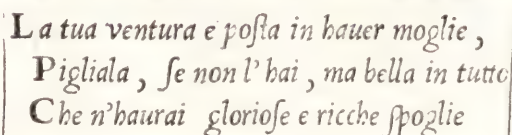 La tua ventura e poſta in hauer moglie,
Pigliala, ſe non l' hai, ma bella in tutto
Che n'haurai glorioſe e ricche ſpoglie